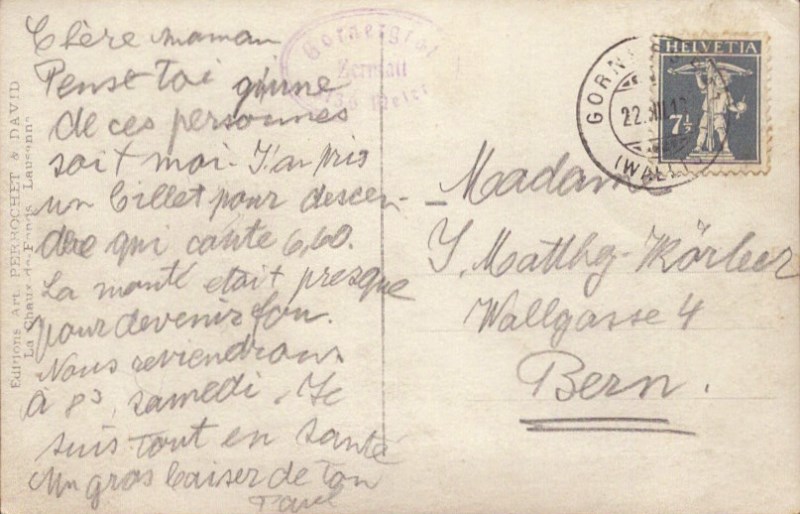 Chère maman
Pense toi qu'une
de ces personnes
soit moi. J'ai pris
un billet pour descen-
dre qui coûte 6,60.
La monté était presque
pour devenir fou.
Nous reviendrons
à 8³ samedi. Je
suis tout en santé
Un gros baiser de ton
Paul
Gornergrat
Zermatt
Meter
GORN
22.
(WALLIS)
HELVETIA
7½
Madame
J. Matthey-Körber
Wallgasse 4
Bern.
Editions Art. PERROCHET & DAVID
La Chaux-de-Fonds Lausanne